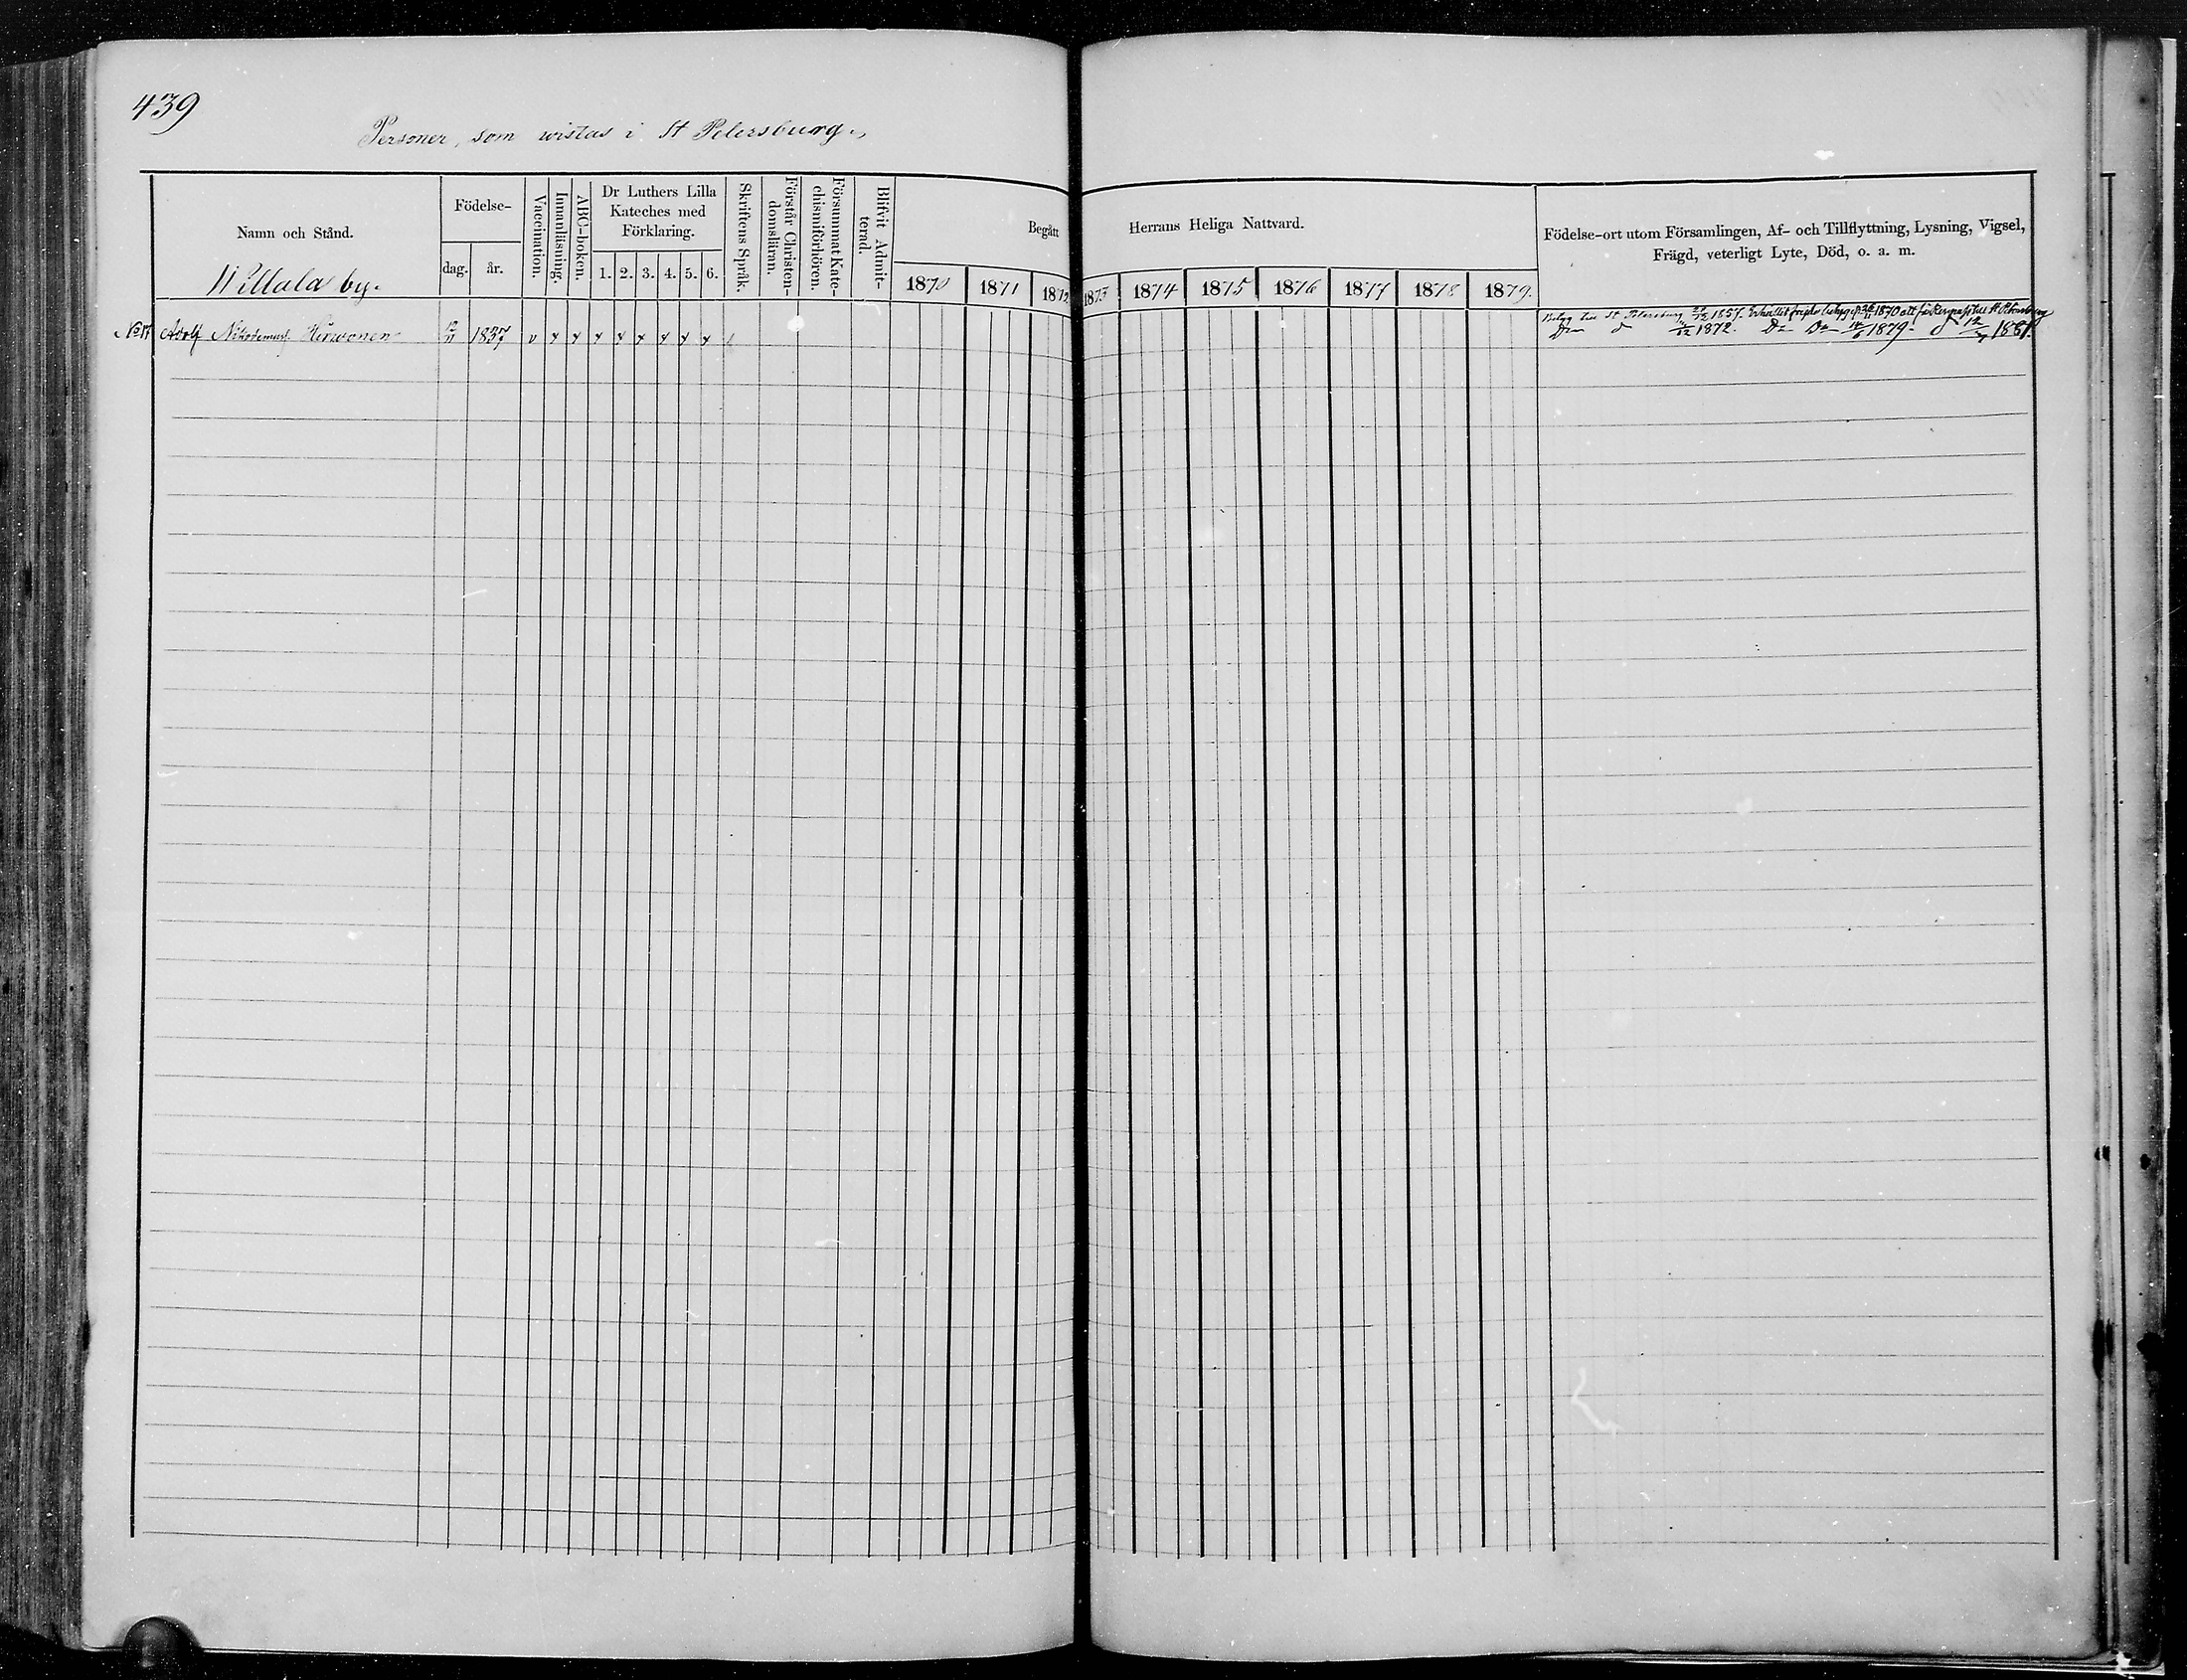 439
Personer, som wistas i St Petersburg.
Namn och Stånd.
Willala by.
Födelse-
dag.
år.
Vaccination.
Innanläsning.
ABC-boken.
Dr Luthers Lilla
Kateches med
Förklaring.
1. 2. 3. 4. 5. 6.
Skriftens Språk.
Förstår Christen-
domsläran.
Försummat Kate-
chismiförhören.
Blifvit Admit-
terad.
Begått Herrans Heliga Nattvard.
1870 1871 1872 1873 1874 1875 1876 1877 1878 1879.
Födelse-ort utom Församlingen, Af- och Tillflyttning, Lysning, Vigsel,
Frägd, veterligt Lyte, Död, o. a. m.
No 17 Adolf Nikodemus Hirwonen 12/11 1837 v x x x x x x x x
till St Petersburg 1857. 1870 att få Respass till St Petersburg
12/12 1872. Do Do 14/6 1879 12/7 1881.